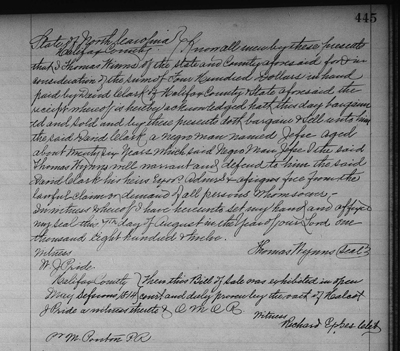 445
State of North Carolina }
Halifax County } Know all men by these presents
that I Thomas Wynns of the state and County aforesaid for & in
consideration of the sum of Four Hundred Dollars in hand
paid by David Clark of Halifax County & State aforesaid the
receipt whereof is hereby acknowledged hath this day bargain
ed and sold and by these presents doth bargain & Sell unto him
the said David Clark, a negro man named Jofse aged
about Twenty Six Years which said Negro Man Jofse I the said
Thomas Wynns will warrant and defend to him the said
David Clark his heirs Exors. Admrs. & assigns free from the
lawful claim or demand of all persons whomsoever.
In witness whereof I have hereunto set my hand and affixed
my Seal this day of August in the Year of our Lord one
thousand Eight hundred & twelve.
Witness Thomas Wynns (Seal)
W. J. Pride
Halifax County } Then this Bill of Sale was exhibited in open
May Sessions, 1814 } court and duly proven by the oath of
J Pride a witness thereto & O. M. O. R.
Witness
Richard Eppes Clk
Pr M. P.R.